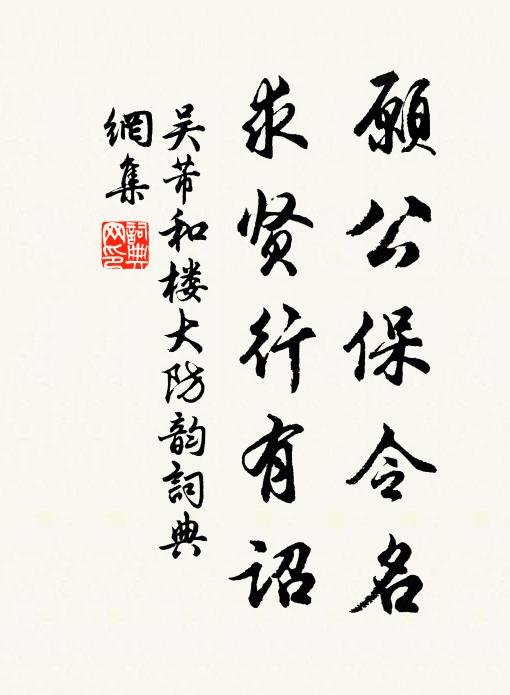 願公保令名
求贤行有詔
吴芾和楼大防韵詞典
網集
詞典
网印